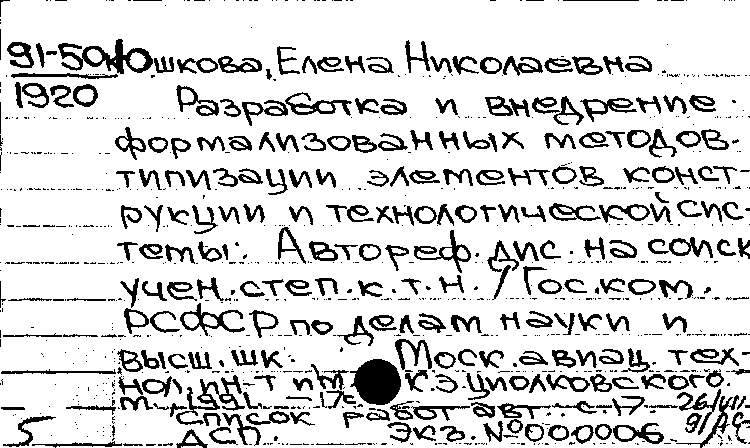 91-50к Юшкова, Елена Николаевна.
1920 Разработка и внедрение
формализованных методов
типизации элементов конст-
рукции и технологической сис-
темы: Автореф. дис. на соиск
учен. степ. к. т. н. / Гос. ком.
РСФСР по делам науки и
высш. шк. Моск. авиац. тех-
нол. ин-т им. К. Э. Циолковского.
М., 1991. – 17с
Список работ авт.: с. 17
ДСП. Экз. № 000006
5